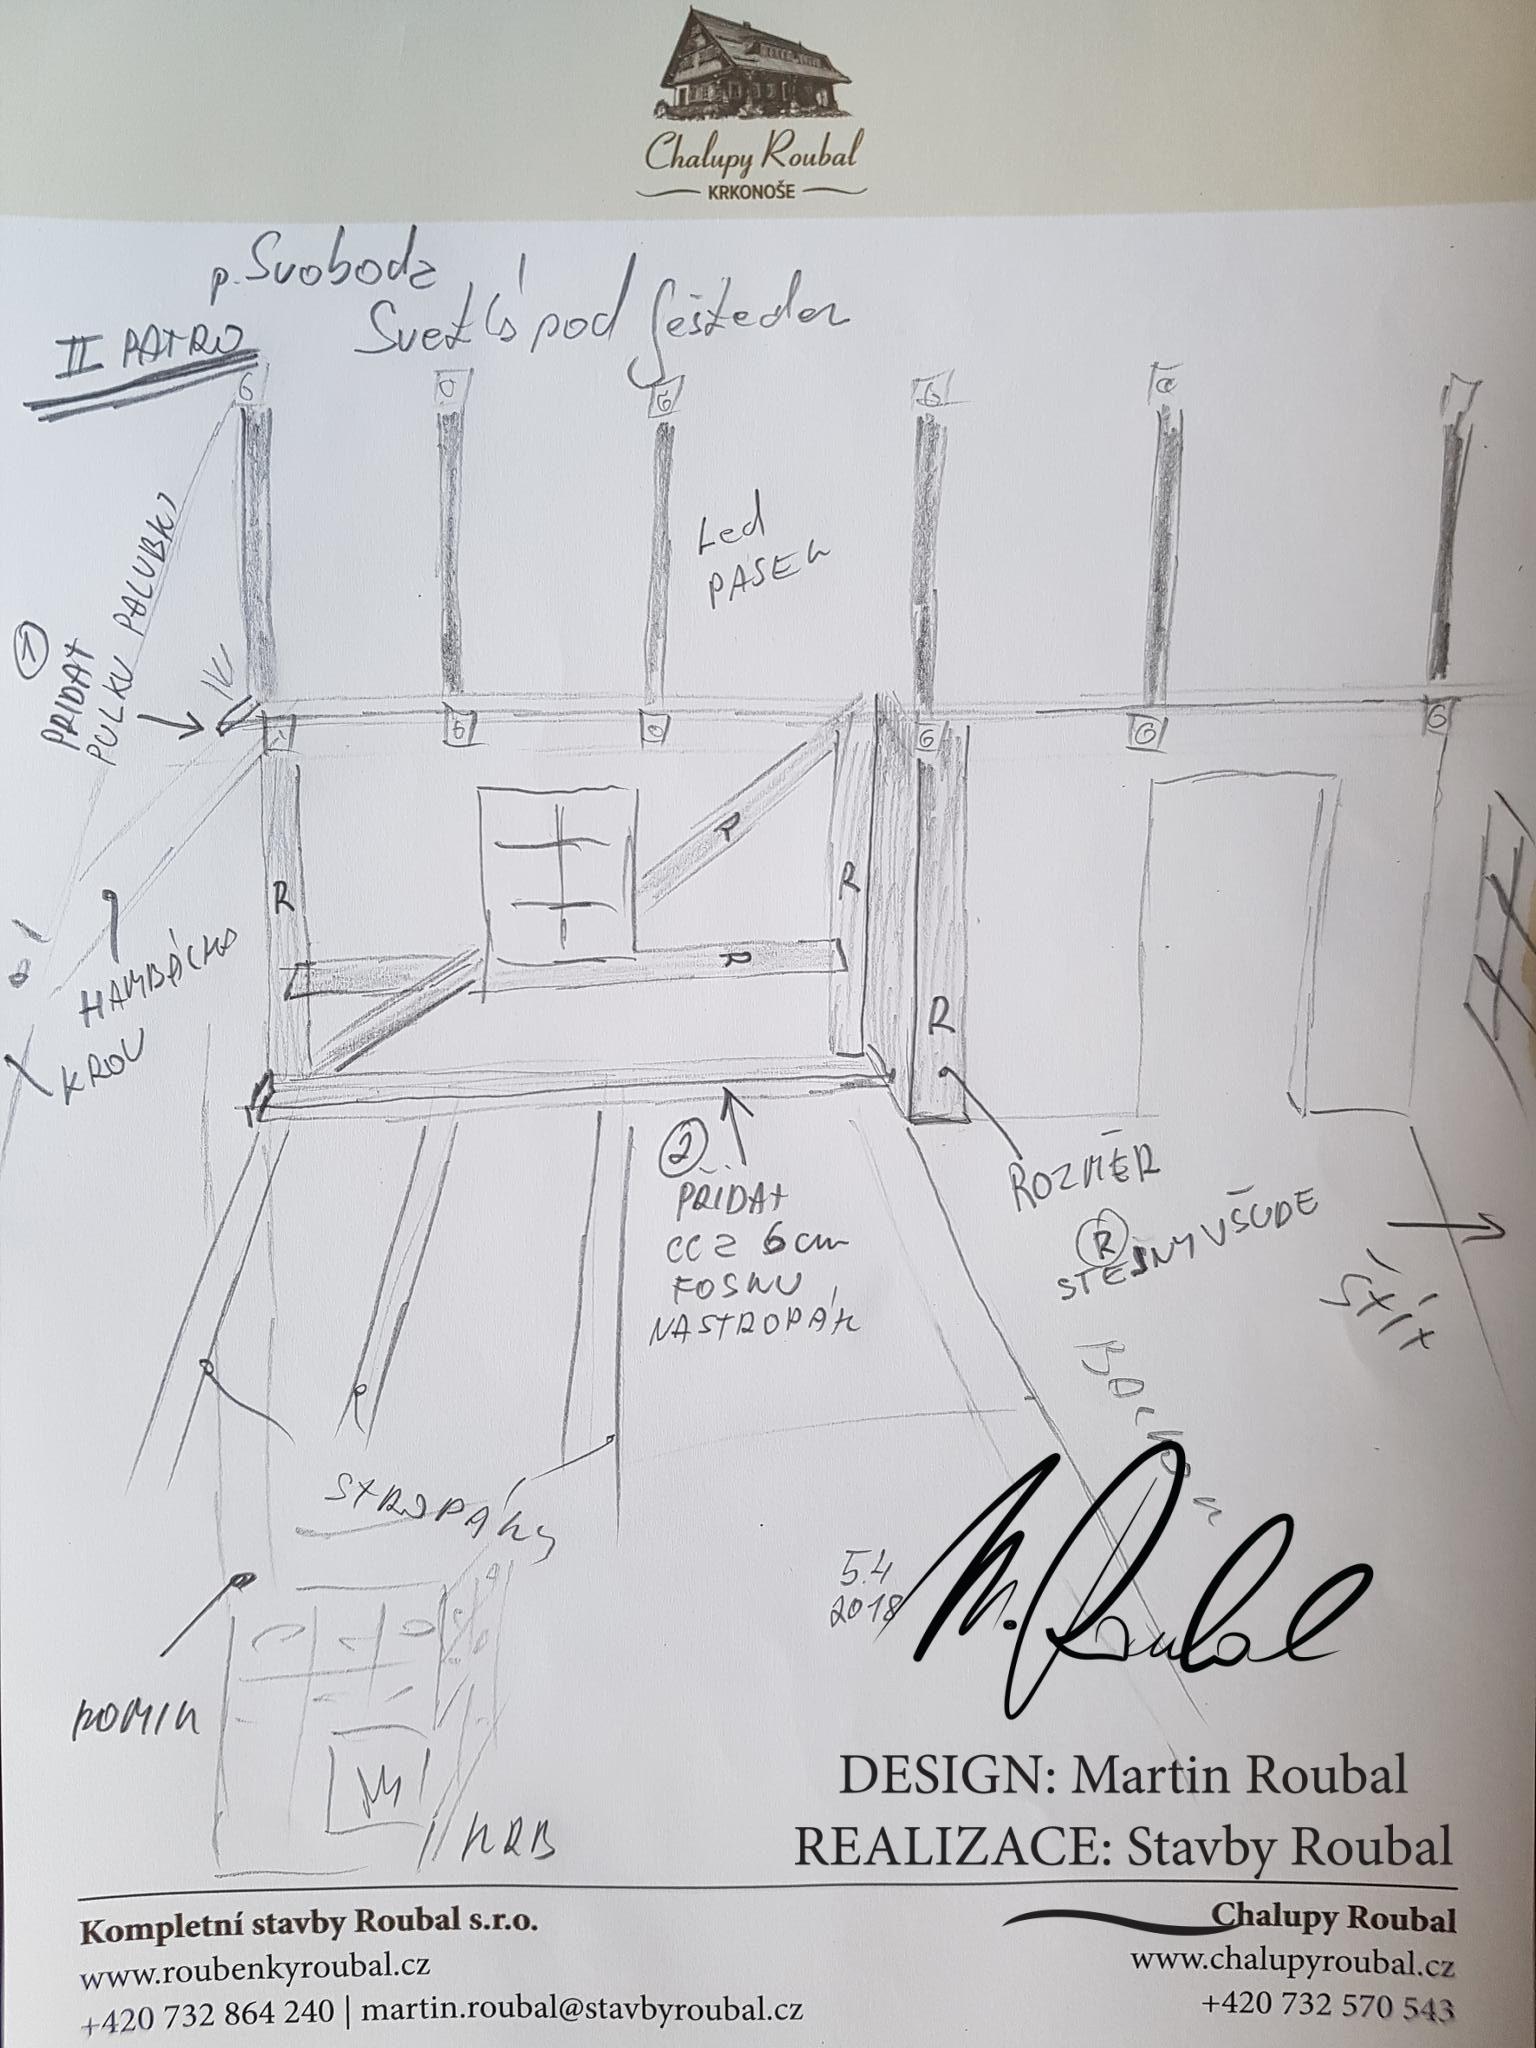 Chalupy Roubal
KRKONOŠE
p. Svoboda
Svetlá pod Ještedem
II PATRO
G
G
G
G
Led
PÁSEK
1
PŘIDAT
PULKU PALUBKY
G
G
G
G
R
R
R
R
R
HAMBÁLKA
KROV
2
PŘIDAT
CCA 6 cm
FOSNU
NA STROPÁK
ROZMĚR
R
STEJNY VŠUDE
ŠTÍT
STROPÁKY
5.4
2018
M. Roubal
KOMIN
KRB
DESIGN: Martin Roubal
REALIZACE: Stavby Roubal
Kompletní stavby Roubal s.r.o.
www.roubenkyroubal.cz
+420 732 864 240 | martin.roubal@stavbyroubal.cz
Chalupy Roubal
www.chalupyroubal.cz
+420 732 570 543